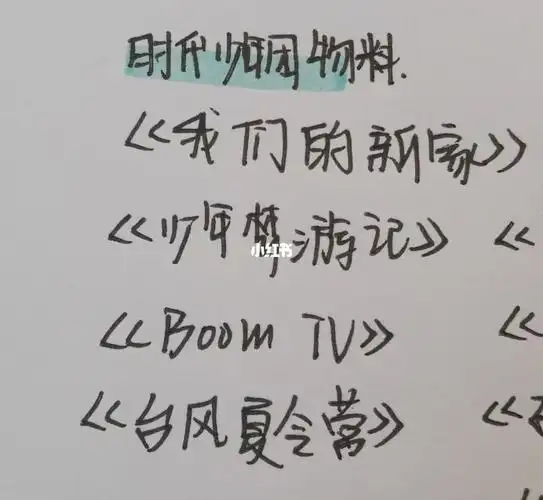 时代少年团物料.
<<我们的新家>>
<<少年梦游记>> <<
小红书
<<Boom TV>> <<
<<台风夏令营>> <<